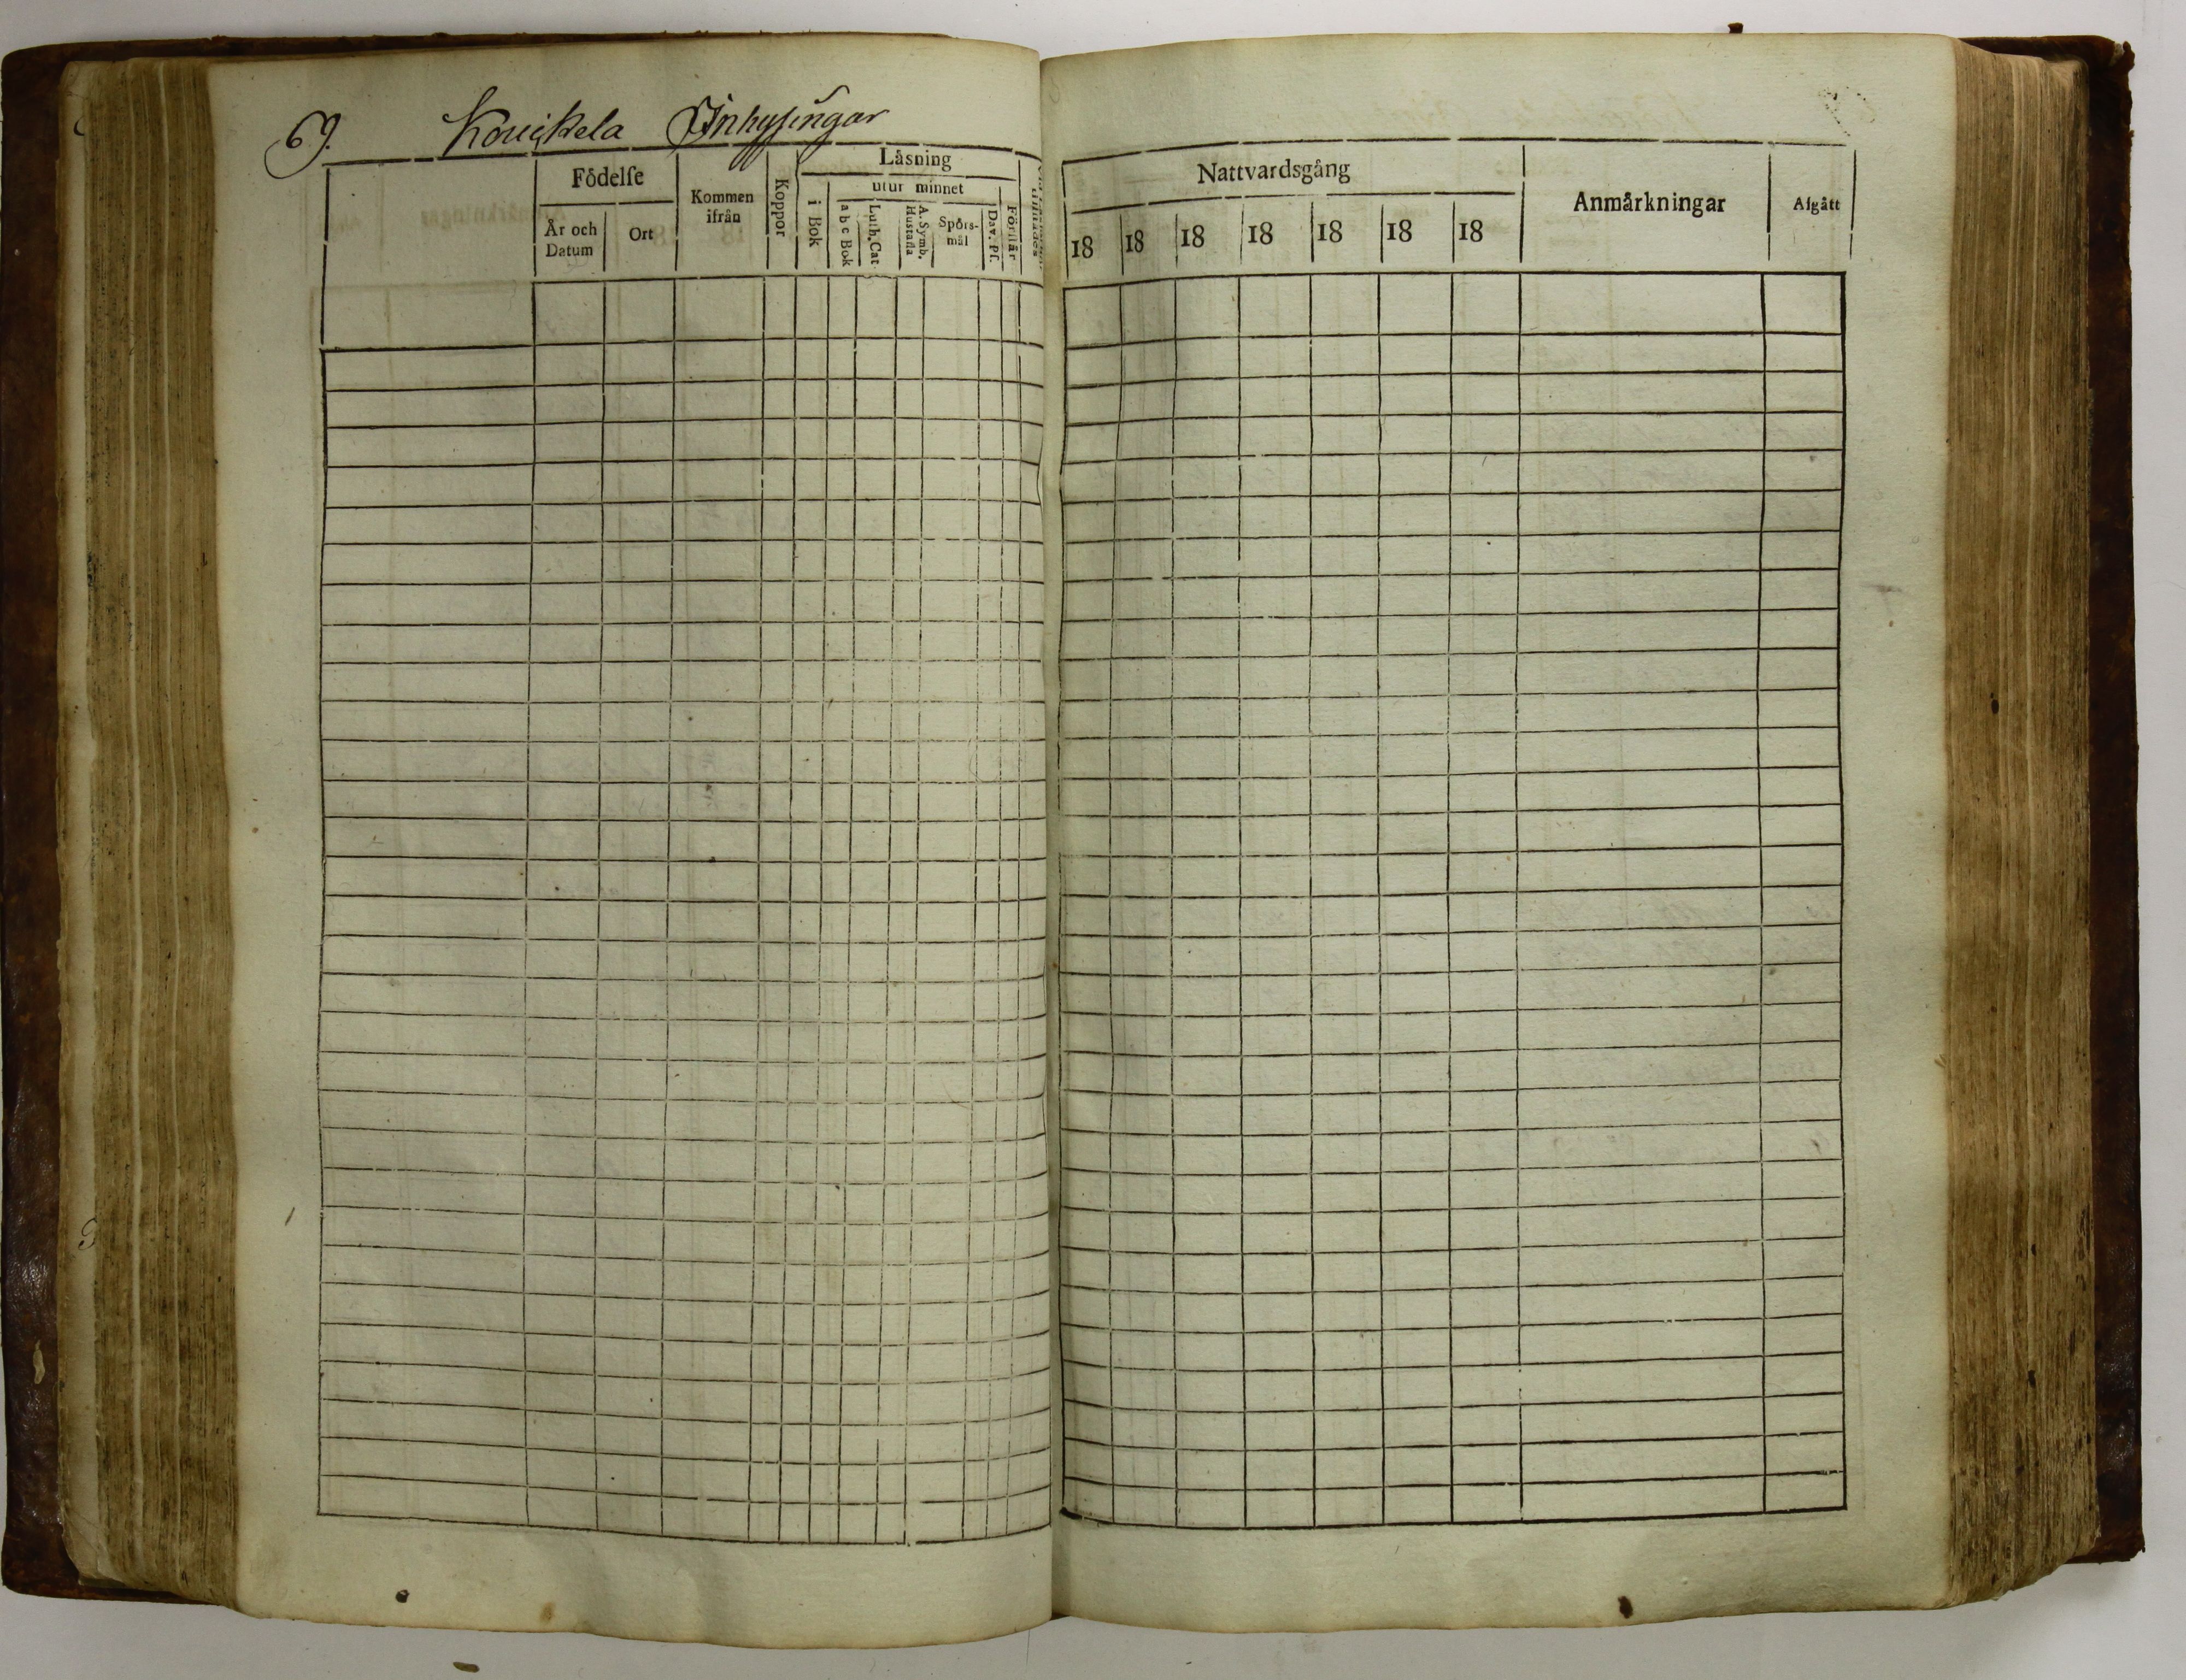 69. Kouikela Inhysingar
Födelse
År och Datum
Ort
Kommen ifrån
Koppor
Läsning
i Bok
utur minnet
a b c Bok
Luth. Cat
A. Symb. Hustafla
Spörs-mål
Dav. Ps.
Förstår
Nattvardsgång
18 18 18 18 18 18 18
Anmärkningar
Afgått